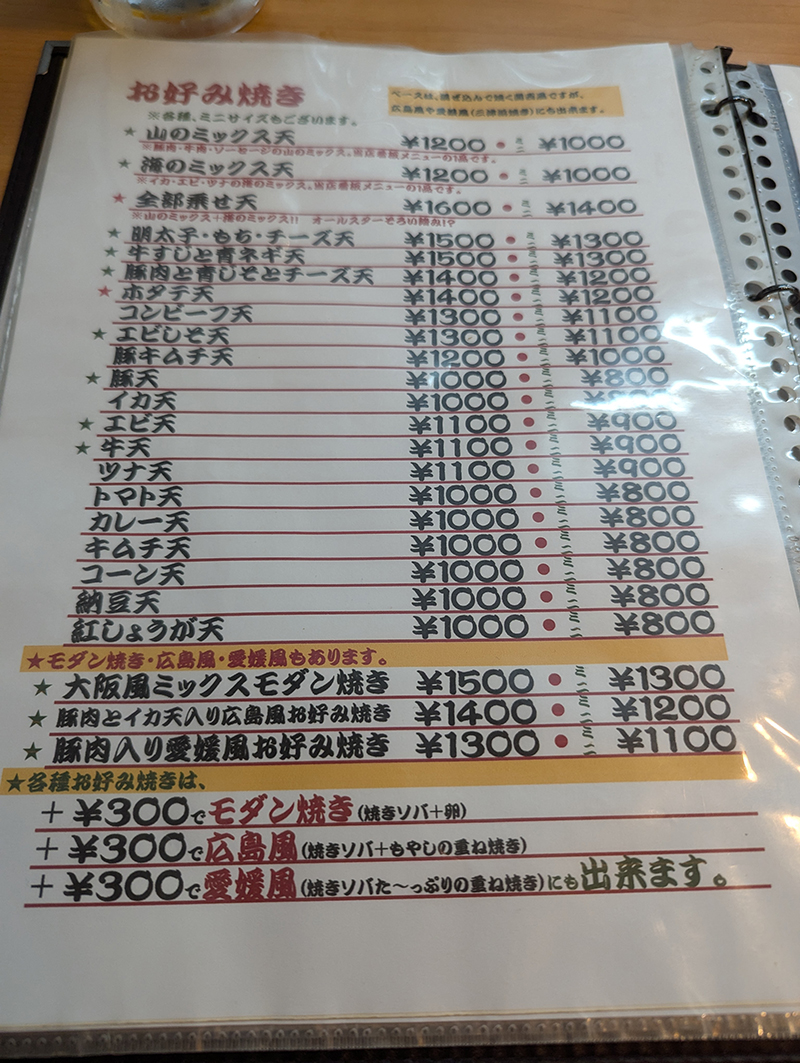 お好み焼き
ベースは、混ぜ込んで焼く関西風ですが、
広島風や愛媛風(三津浜焼き)にも出来ます。
※各種、ミニサイズもございます。
★ 山のミックス天 ¥1200 ● ミニ ¥1000
※豚肉・牛肉・ソーセージの山のミックス。当店看板メニューの1品です。
★ 海のミックス天 ¥1200 ● ミニ ¥1000
※イカ・エビ・ツナの海のミックス。当店看板メニューの1品です。
★ 全部乗せ天 ¥1600 ● ミニ ¥1400
※山のミックス+海のミックス!! オールスターそろい踏み!?
★ 明太子・もち・チーズ天 ¥1500 ● ミニ ¥1300
★ 牛すじと青ネギ天 ¥1500 ● ミニ ¥1300
★ 豚肉と青しそとチーズ天 ¥1400 ● ミニ ¥1200
★ ホタテ天 ¥1400 ● ミニ ¥1200
コンビーフ天 ¥1300 ● ミニ ¥1100
★ エビしそ天 ¥1300 ● ミニ ¥1100
豚キムチ天 ¥1200 ● ミニ ¥1000
★ 豚天 ¥1000 ● ミニ ¥800
イカ天 ¥1000 ● ミニ
★ エビ天 ¥1100 ● ミニ ¥900
★ 牛天 ¥1100 ● ミニ ¥900
ツナ天 ¥1100 ● ミニ ¥900
トマト天 ¥1000 ● ミニ ¥800
カレー天 ¥1000 ● ミニ ¥800
キムチ天 ¥1000 ● ミニ ¥800
コーン天 ¥1000 ● ミニ ¥800
納豆天 ¥1000 ● ミニ ¥800
紅しょうが天 ¥1000 ● ミニ ¥800
★モダン焼き・広島風・愛媛風もあります。
★ 大阪風ミックスモダン焼き ¥1500 ● ミニ ¥1300
★ 豚肉とイカ天入り広島風お好み焼き ¥1400 ● ミニ ¥1200
★ 豚肉入り愛媛風お好み焼き ¥1300 ● ミニ ¥1100
★各種お好み焼きは、
+¥300でモダン焼き(焼きソバ+卵)
+¥300で広島風(焼きソバ+もやしの重ね焼き)
+¥300で愛媛風(焼きソバた〜っぷりの重ね焼き)にも出来ます。